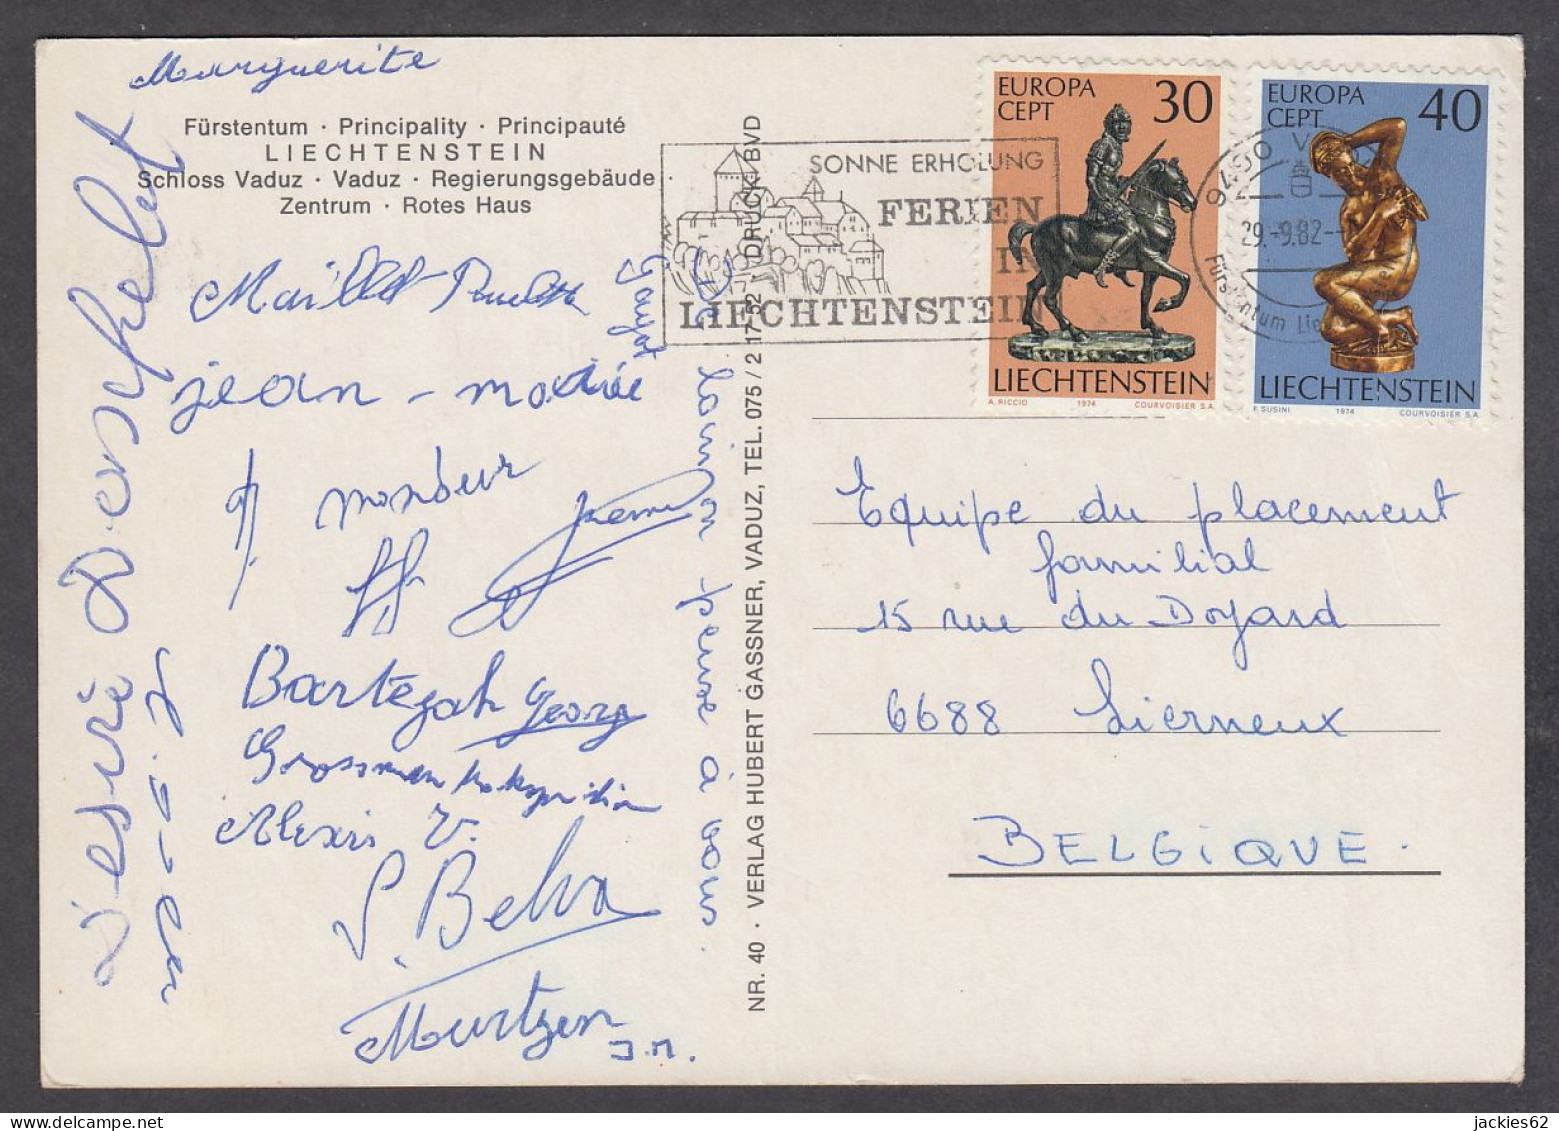 Marguerite
Fürstentum · Principality · Principauté
LIECHTENSTEIN
Schloss Vaduz · Vaduz · Regierungsgebäude ·
Zentrum · Rotes Haus
jean-marie
monsieur
Georg
Alexis V.
S. Belva
Murtzen
J.M.
Désiré
De loin on pense à vous.
NR. 40 · VERLAG HUBERT GASSNER, VADUZ, TEL. 075 / 2 17 52 · DRUCK: BVD
SONNE ERHOLUNG
FERIEN
IN
LIECHTENSTEIN
EUROPA
CEPT
30
LIECHTENSTEIN
A. RICCIO 1974 COURVOISIER S.A.
EUROPA
CEPT
40
LIECHTENSTEIN
F. SUSINI 1974 COURVOISIER S.A.
9490 V
29.-9.82--
Fürstentum Lie
Equipe du placement
familial
15 rue du Doyard
6688 Lierneux
BELGIQUE.
jackies62